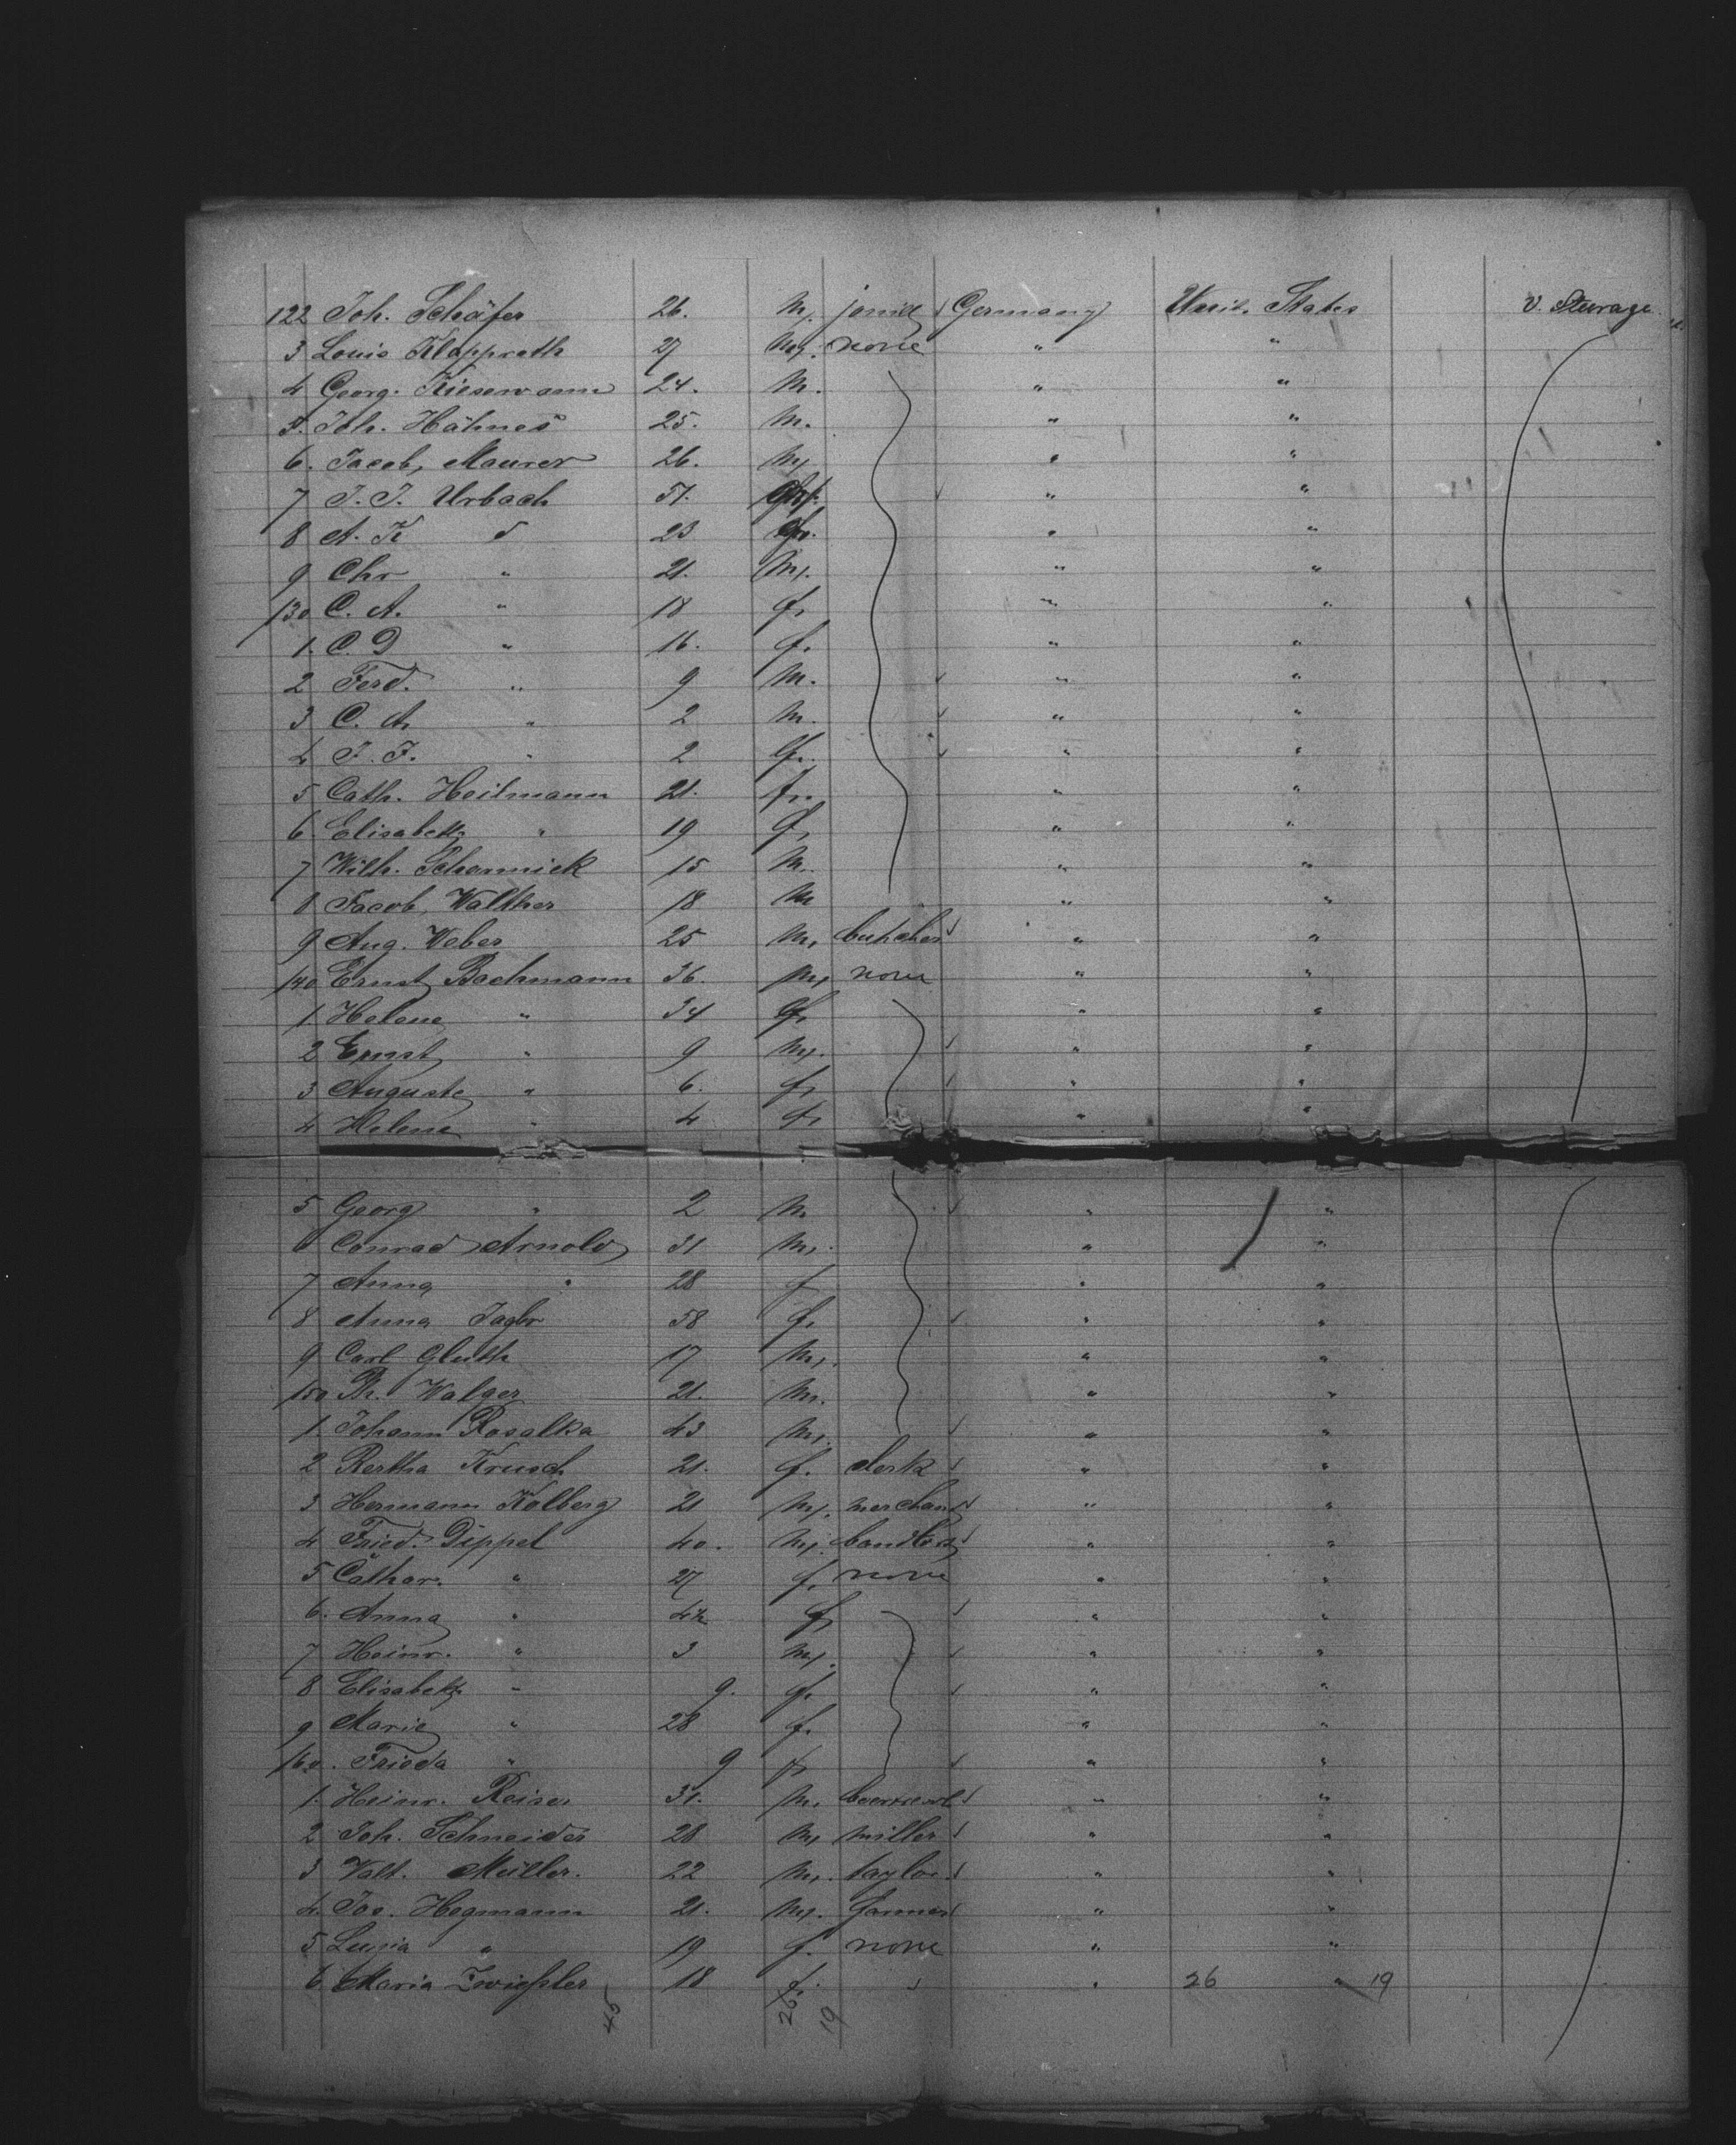 122 Joh. Schäfer 26. M. Germany Unit. States V. Steerage
3 Louis Klapproth 27 M. none " "
4 Georg. Kiesewann 24. M. " "
5. Joh. Hähnes 25. M. " "
6. Jacob, Maurer 26. M. " "
7 J. J. Urbach 51. " "
8 A. K 23 " "
9 Chr " 21. M. " "
130 C. A. " 18 f. " "
1. C. D " 16. f. " "
2 Ferd. " 9 M. " "
3 C. A. " 2 M. " "
4 J. F. " 2 f. " "
5 Cath. Heilmann 21. f. " "
6. Elisabeth " 19 f. " "
7 Wilh. Scharmick 15 M. " "
8 Jacob, Walther 18 M " "
9 Aug. Weber 25 M. butcher " "
140 Ernst Bachmann 36. M. none " "
1. Helene " 34 f. " "
2 Ernst " 9 M. " "
3 Auguste " 6. f. " "
4 Helene " 4 f. " "
5 Georg " 2 M. " "
6 Conrad Arnold 31 M. " "
7 Anna " 28 f " "
8 Anna 58 f. " "
9 Carl Gluth 17 M. " "
150 Ph. Walger 21. M. " "
1. Johann Rosalka 43 M. " "
2 Bertha Krusch 21. f. clerk " "
3 Hermann Kolberg 21 M. merchant " "
4 Fried. Dippel 40. M. " "
5 Cathar. " 27 f. none " "
6. Anna " f. " "
7 Heinr. " 3 M. " "
8 Elisabeth " 9. f. " "
9 Marie " 28 f. " "
160. Frieda " 9 f. " "
1. Heinr. Reiser 31. M. " "
2 Joh. Schneider 28 M. miller " "
3 Valt. Müller. 22 M. taylor " "
4. Jos. Hegmann 21. M. farmer " "
5 Luzia " 19 f. none " "
6 Maria Zwießler 18 f. " " 26 " 19
45 26 19